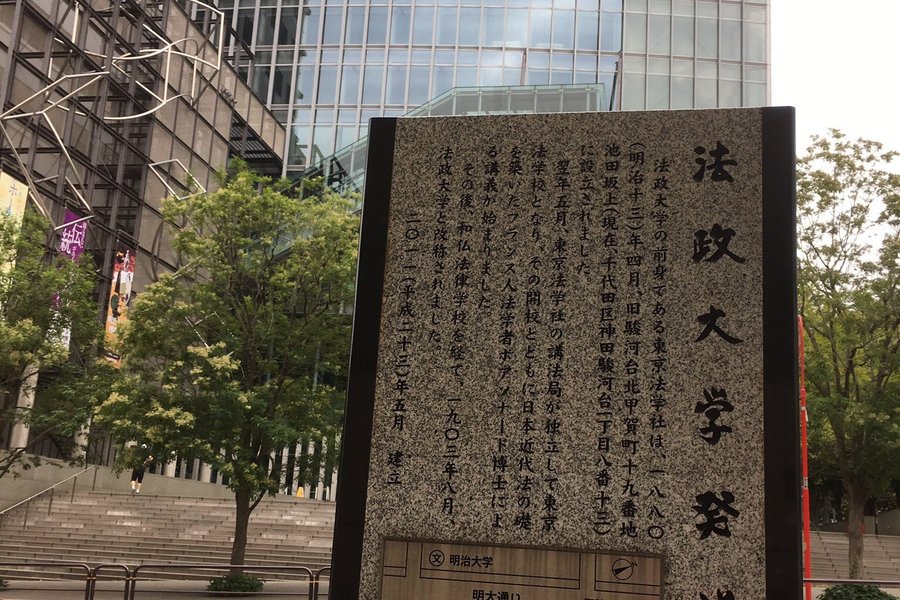 法政大学発
法政大学の前身である東京法学社は、一八八〇
(明治十三)年四月、旧駿河台北甲賀町十九番地
池田坂上(現在、千代田区神田駿河台一丁目八番十三)
に設立されました。
翌年五月、東京法学社の講法局が独立して東京
法学校となり、その開校とともに日本近代法の礎
を築いたフランス人法学者ボアソナード博士によ
る講義が始まりました。
その後、和仏法律学校を経て、一九〇三年八月、
法政大学と改称されました。
二〇一一(平成二十三)年五月 建立
文 明治大学
明大通り
伝統